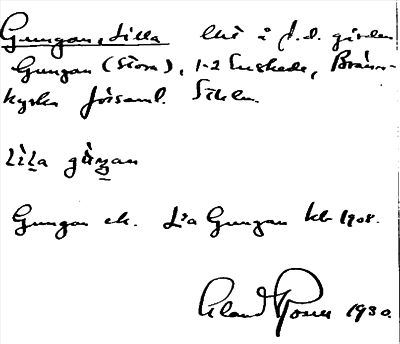 Gungan, Lilla lht å f.d. gården
Gungan (Stora), 1-2 Enskede, Bränn-
kyrka församl. Sthlm.
lìla gàŋan
Gungan ek. L:a Gungan kb 1908.
Roser 1930.